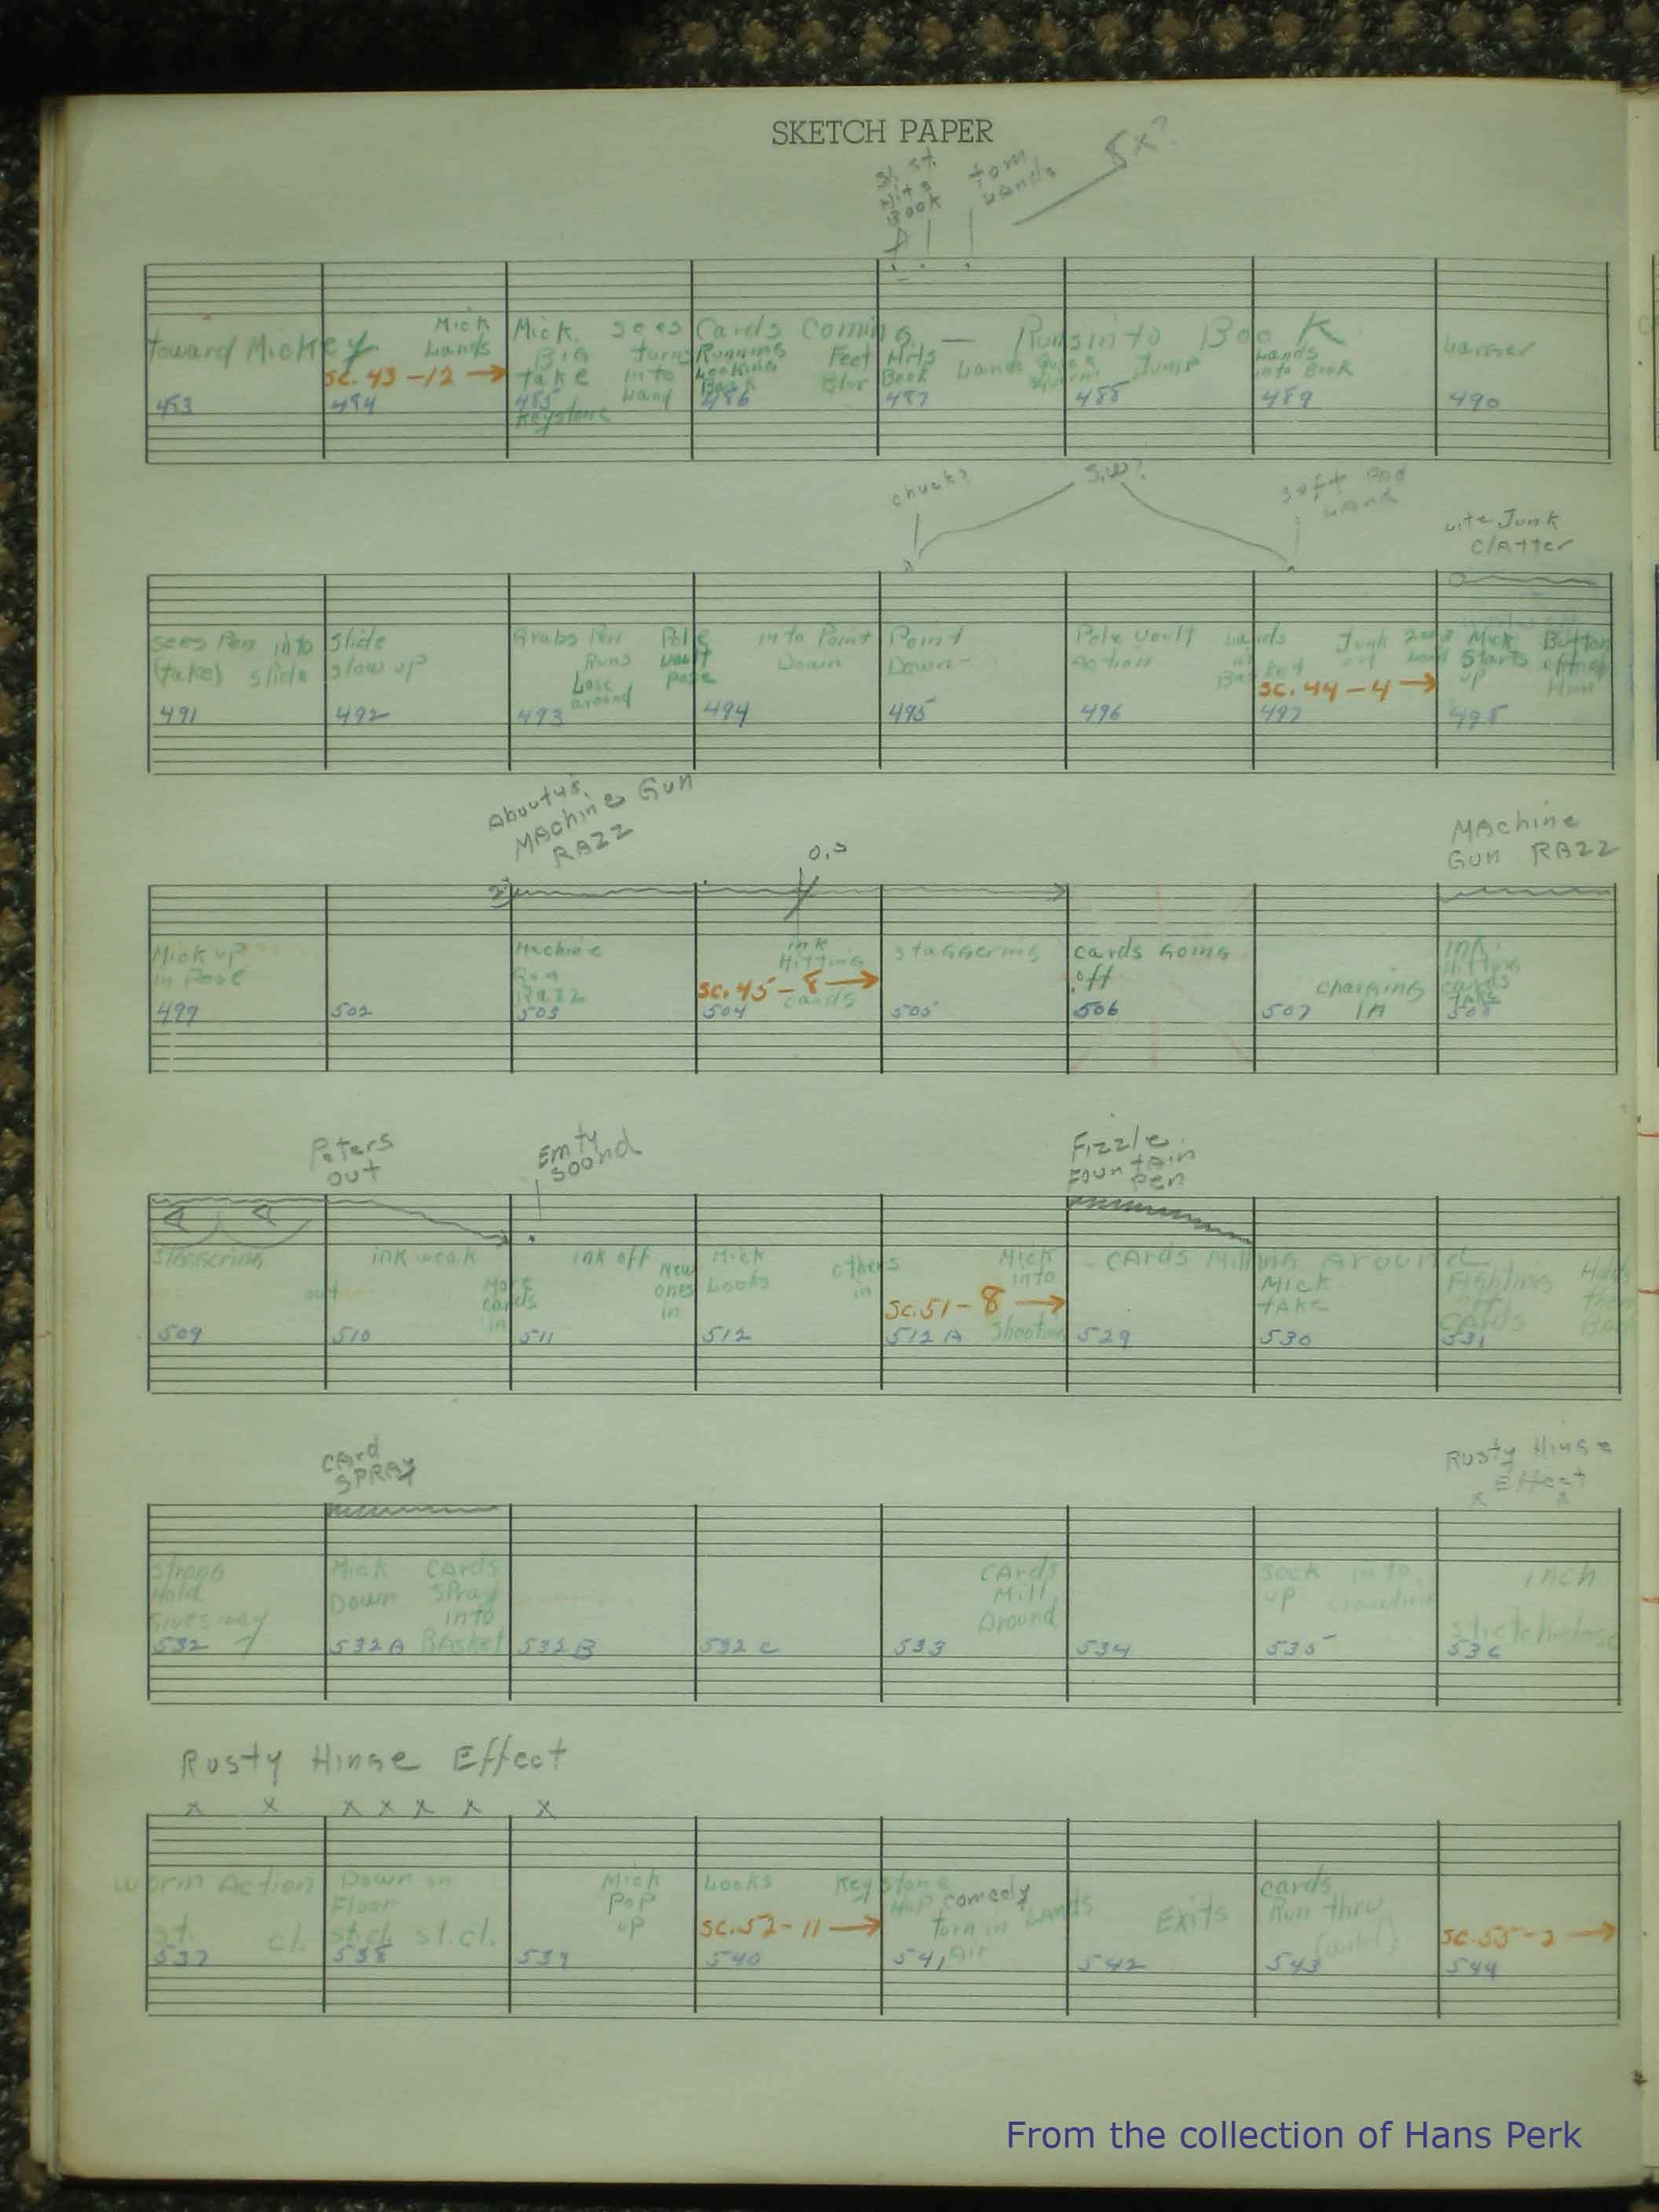 SKETCH PAPER
Hits
Book
tom
Lands
5x?
toward Mickey
Mick
Lands
sc. 43 - 12 →
Mick. sees Cards Coming — Runs into Book
Big turns
take into
Keystone
Running Feet
Looking
Back Blur
Hits
Book
Lands
Jump
Lands
into Book
483
484
485
486
487
488
489
490
chuck?
S.W?
soft
Land
Junk
Clatter
sees Pen into
(take) slide
Slide
slow up
Grabs Pen
Runs
around
Pole
vault
pose
into Point
Down
Point
Down-
Pole vault
action
Lands
in
Basket
Junk
sc. 44 - 4 →
Mick
Starts
up
Button
491
492
493
494
495
496
497
498
MAchine Gun
RAZZ
O.S
MAchine
Gun RAZZ
Mick up
in Pose
Machine
Gun
Razz
ink
Hitting
cards
sc. 45 - 8 →
staggering
cards going
off
charging
in
ink
Hitting
cards
take
499
502
503
504
505
506
507
508
Peters
out
Emty
Sound
Fizzle
Fountain
pen
Staggering
out
ink weak
More
cards
in
ink off
New
ones
in
Mick
Looks
others
in
Mick
into
Shooting
sc. 51 - 8 →
- CArds Milling Around
Mick
take
Fighting
off
CArds
Holds
them
Back
509
510
511
512
512 A
529
530
531
CArd
SPRAY
Rusty Hinge
Effect
x x
Strong
Hold
Gives way
Mick
Down
CArds
Spray
into
BAsket
CArds
Mill
Around
Sock into
up
inch
stretch-close
532
532 A
532 B
532 C
533
534
535
536
Rusty Hinge Effect
x x x x x x x
Worm Action
st. cl.
Down on
Floor
st.cl. st.cl.
Mick
Pop
up
Looks
sc. 52 - 11 →
Keystone
Hop comedy
turn in
Air
LAnds
Exits
cards
Run thru
(wild)
sc. 55 - 2 →
537
538
539
540
541
542
543
544
From the collection of Hans Perk